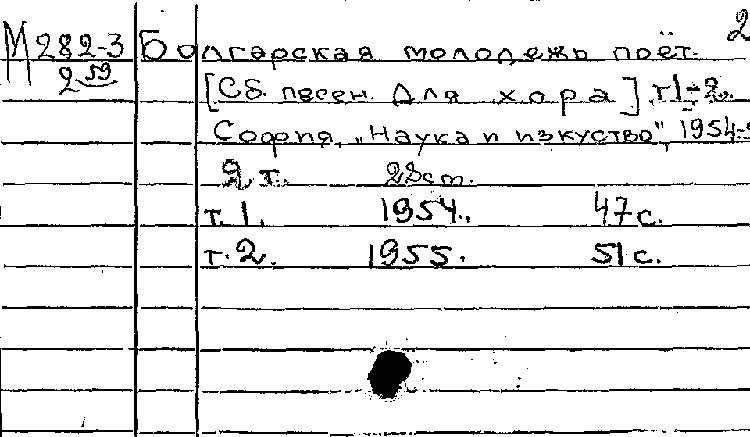 2
М 282-3 Болгарская молодежь поёт.
2 59 [Сб. песен. Для хора] т1-2.
София, „Наука и изкуство", 1954-5
2 т. 22 cm.
т. 1. 1954. 47 с.
т. 2. 1955. 51 с.